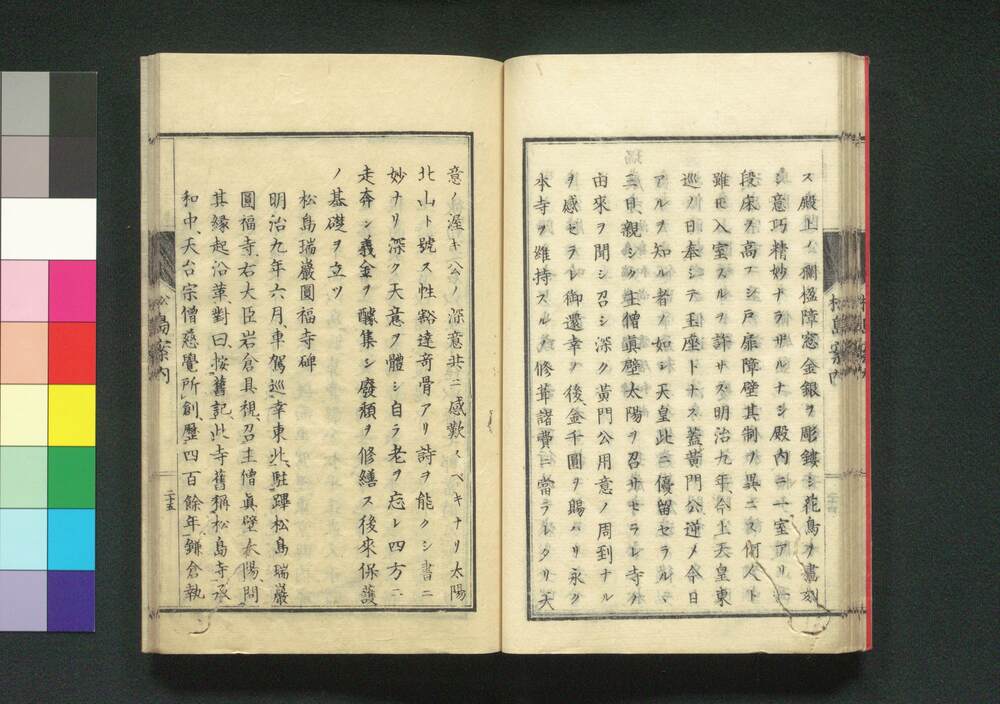 ス殿上ノ欄楹障窓金銀ヲ彫鏤シ花鳥ヲ畫刻
シ意巧精妙ナラサルナシ殿内ニ一室アリ
段床ヲ高フシ戸扉障壁其制ヲ異ニス何人ト
雖𪜈入室スルヲ許サス明治九年今上天皇東
巡ノ日奉シテ玉座トナス蓋黄門公逆メ今日
アルヲ知ル者ノ如シ天皇此ニ優留セラルヽ
三日親シク主僧眞壁太陽ヲ召サセラレ寺ノ
由來ヲ聞シ召シ深ク黄門公用意ノ周到ナル
ヲ感セラレ御還幸ノ後金千圓ヲ賜ハリ永ク
本寺ヲ維持スルノ修葺諸費ニ當ラレタリ天
松島案内
意ノ渥キ公ノ深意共ニ感歎スヘキナリ太陽
北山ト號ス性豁達奇骨アリ詩ヲ能クシ書ニ
妙ナリ深ク天意ヲ體シ自ラ老ヲ忘レ四方ニ
走奔シ義金ヲ醵集シ廢頽ヲ修繕ス後來保護
ノ基礎ヲ立ツ
松島瑞巖圓福寺碑
明治九年六月、車駕巡幸東北、駐蹕松島瑞巖
圓福寺、右大臣岩倉具視、召主僧眞壁太陽、問
其縁起沿革、對曰、按舊記、此寺舊稱松島寺、承
和中、天台宗僧慈覺所創、歷四百餘年、鎌倉執
松島案内
二十五